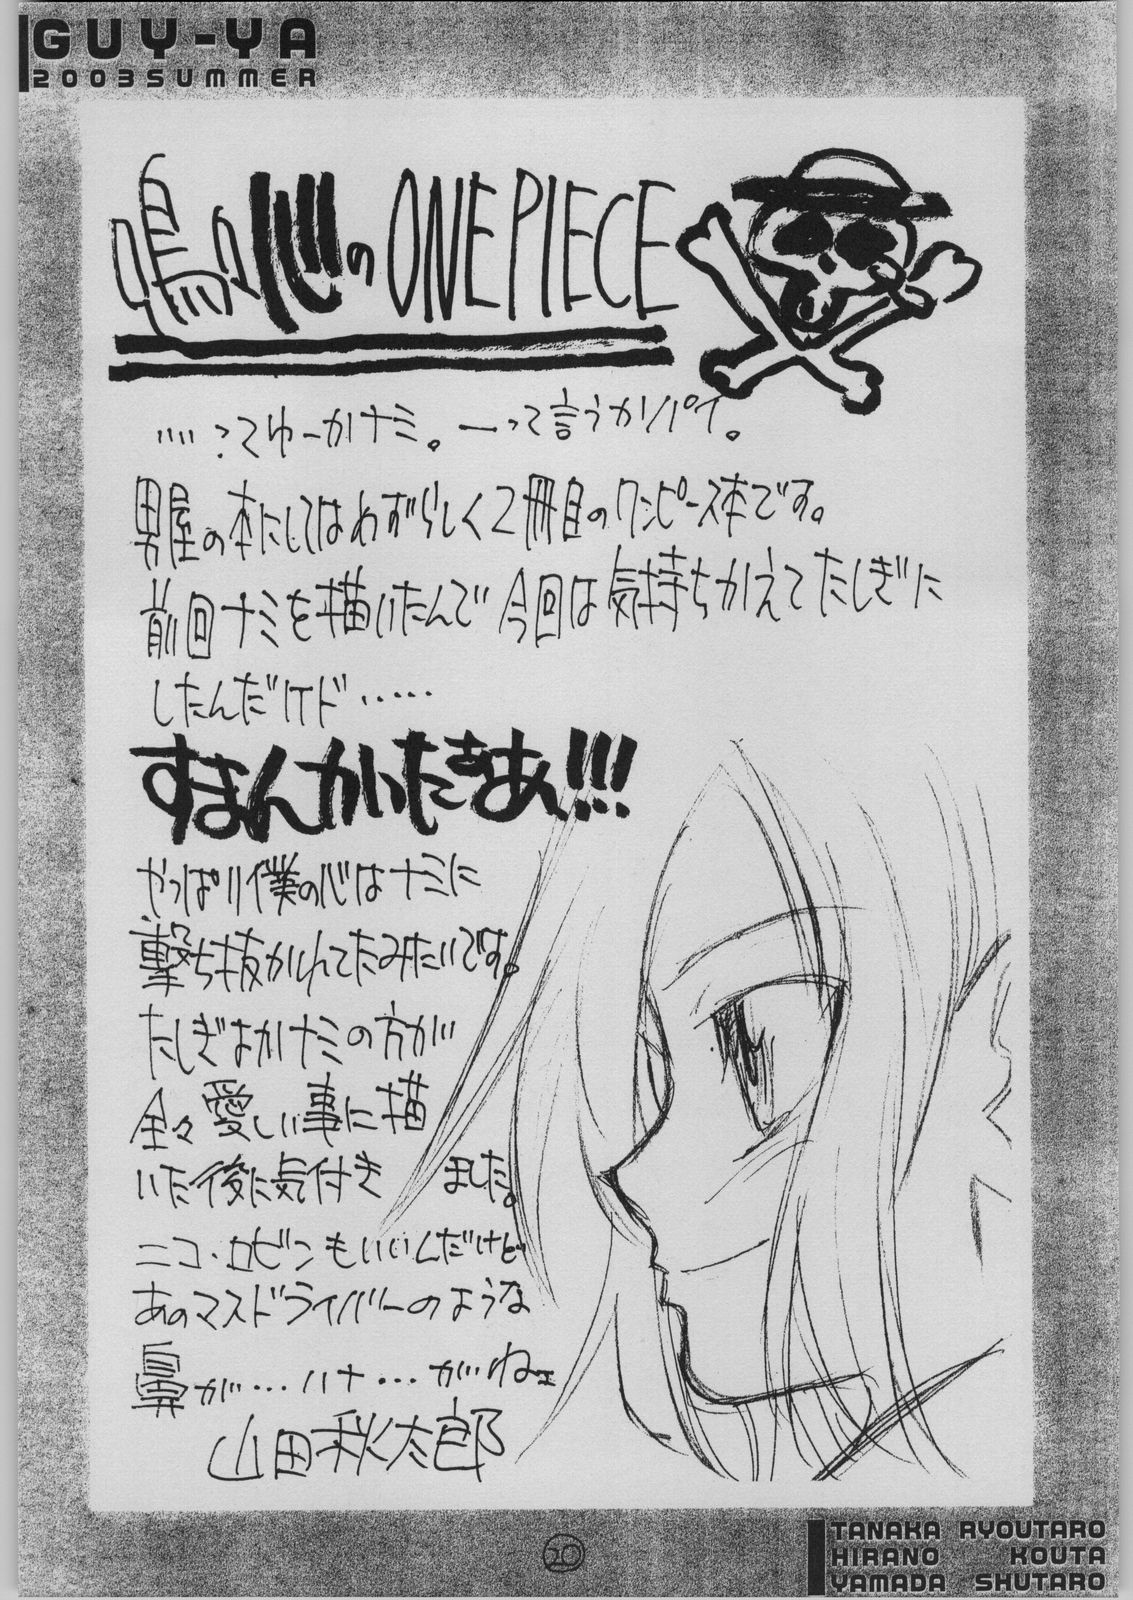 GUY-YA
2003SUMMER
心のONE PIECE
‥‥?てゆーかナミ。ーって言うかパイ。
男屋の本にしてはめずらしく2冊目のワンピース本です。
前回ナミを描いたんで今回は気持ちかえてたしぎに
したんだけド……
すまんかいたぁあん!!!
やっぱり僕の心はナミに
撃ち抜かれてたみたいです。
たしぎよかナミの方が
全々愛しい事に描
いた後に気付き ました。
ニコ・ロビンもいいんだけど
あのマスドライバーのような
鼻が…ハナ…がねェ
山田秋太郎
20
TANAKA RYOUTARO
HIRANO KOUTA
YAMADA SHUTARO